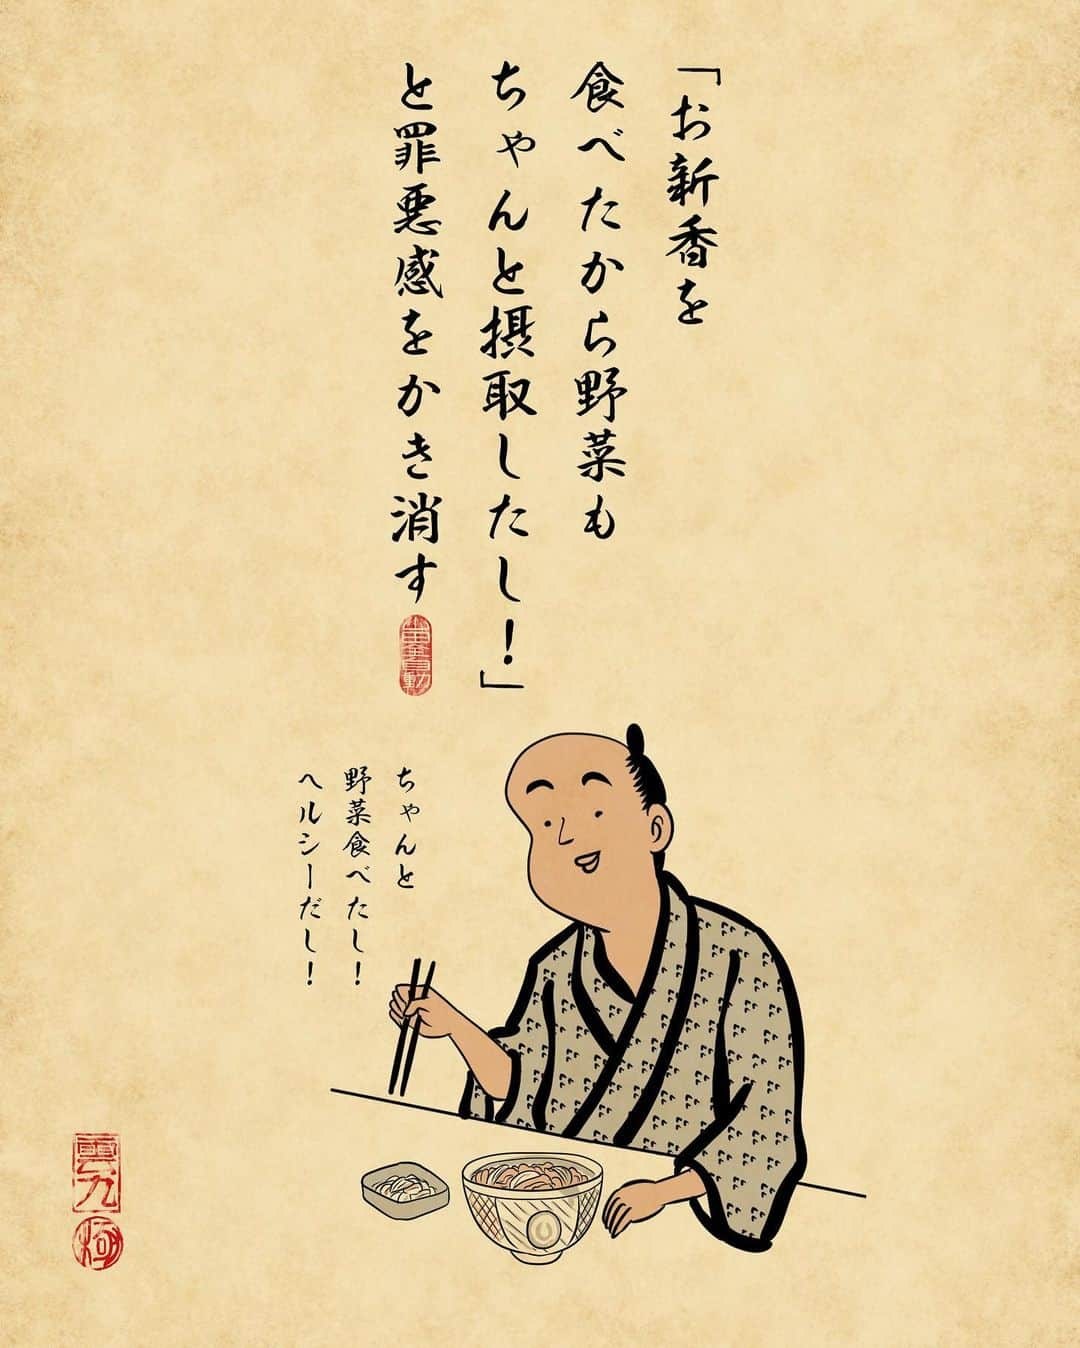 「お新香を
食べたから野菜も
ちゃんと摂取したし！」
と罪悪感をかき消す
ちゃんと
野菜食べたし！
ヘルシーだし！